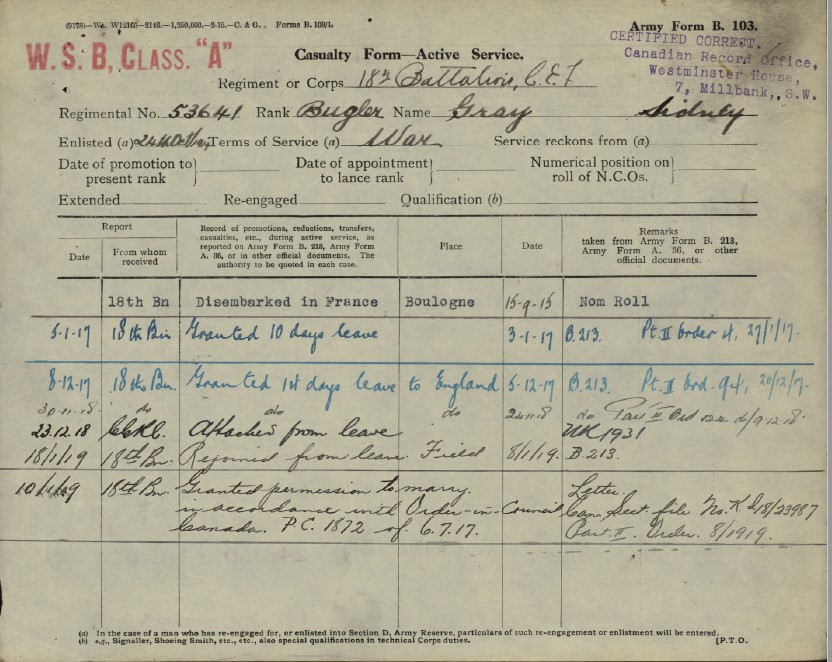 (9178)—Wt. W12165—2146.—1,250,000.—2-15.—C. & G. Forms B. 103/1.
Army Form B. 103.
W.S.B. CLASS. "A"
CERTIFIED CORRECT.
Canadian Record Office,
Westminster House,
7, Millbank, S.W.
Casualty Form—Active Service.
Regiment or Corps 18th Battalion, C.E.F
Regimental No. 53641 Rank Bugler Name Gray Sidney
Enlisted (a) Terms of Service (a) War Service reckons from (a)
Date of promotion to present rank } Date of appointment to lance rank } Numerical position on roll of N.C.Os. }
Extended Re-engaged Qualification (b)
Report
Date
From whom received
Record of promotions, reductions, transfers, casualties, etc., during active service, as reported on Army Form B. 213, Army Form A. 36, or in other official documents. The authority to be quoted in each case.
Place
Date
Remarks
taken from Army Form B. 213, Army Form A. 36, or other official documents.
18th Bn Disembarked in France Boulogne 15-9-15 Nom Roll
5-1-17 18th Bn Granted 10 days leave 3-1-17 B.213. Pt. II Order 4, 27/1/17.
8-12-17 18th Bn. Granted 14 days leave to England 5-12-17 B.213. Pt. II Ord. 94, 20/12/7.
30-11-18 do do do 24-11-18 do Part II Ord 122 d/9-12-18.
23.12.18 Attached from leave
18/1/19 18th Bn. Rejoined from leave Field 8/1/19. B.213.
18th Bn. Granted permission to marry Letter.
in accordance with Order-in-Council
Canada. P.C. 1872 of 6.7.17. Part II. Order. 8/1919.
(a) In the case of a man who has re-engaged for, or enlisted into Section D, Army Reserve, particulars of such re-engagement or enlistment will be entered.
(b) e.g., Signaller, Shoeing Smith, etc., etc., also special qualifications in technical Corps duties. [P.T.O.